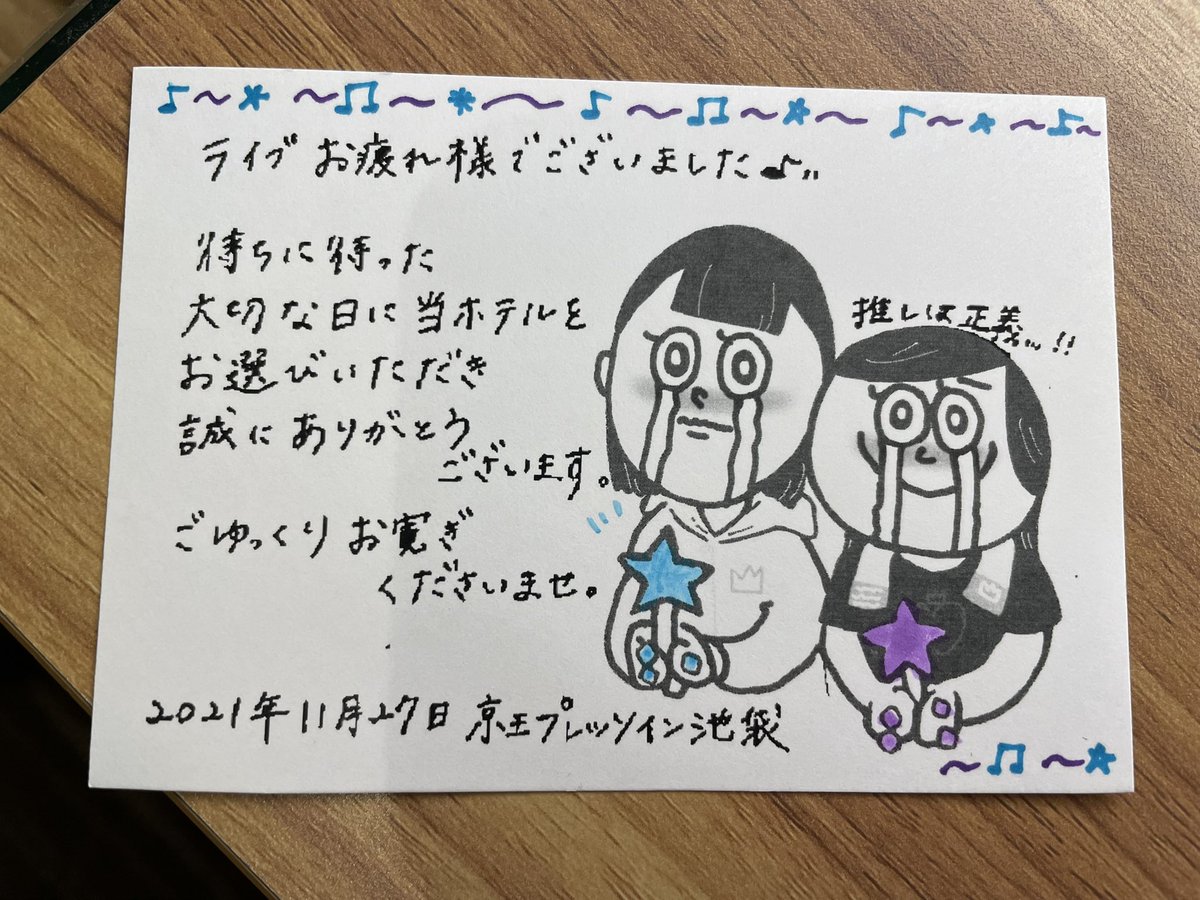 ライブお疲れ様でございました♪〃
待ちに待った
大切な日に当ホテルを
お選びいただき
誠にありがとう
ございます。
ごゆっくりお寛ぎ
くださいませ。
推しは正義…!!
2021年11月27日 京王プレッソイン池袋